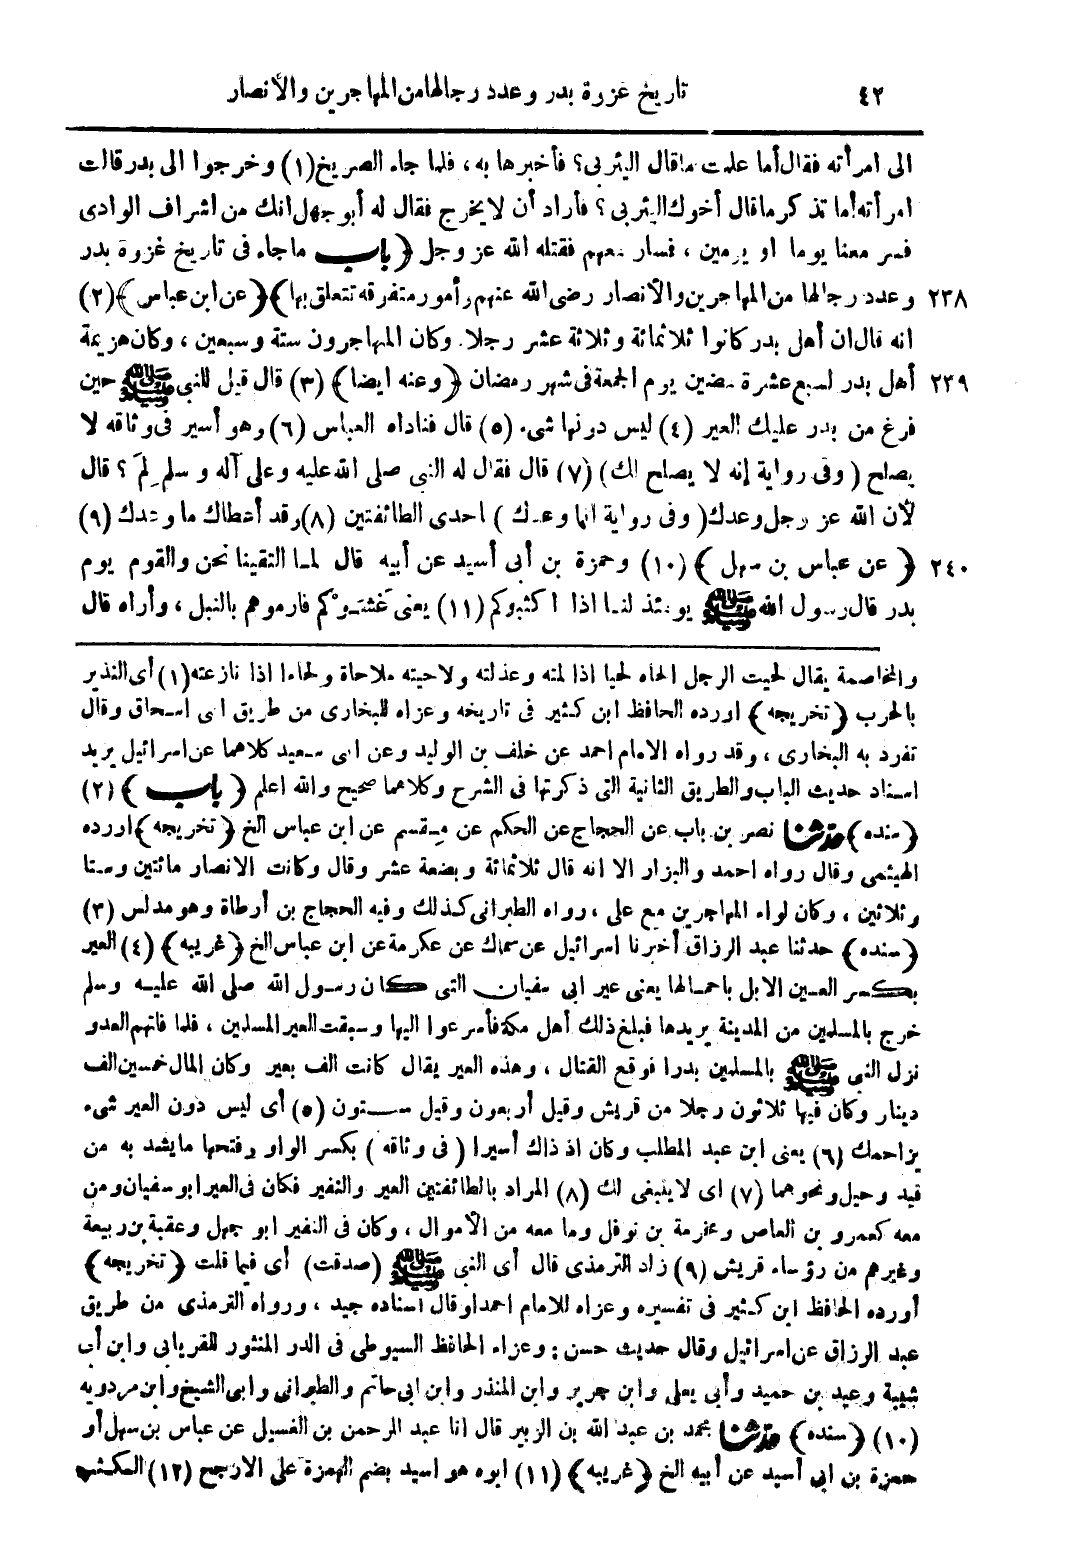 ٤٢ تاريخ غزوة بدر وعدد رجالها من المهاجرين والأنصار
الى امرأته فقال أما علمت ما قال اليثربى؟ فأخبرها به، فلما جاء الصريخ (١) وخرجوا الى بدر قالت
امرأته أما تذكر ما قال أخوك اليثربى؟ فأراد أن لا يخرج فقال له أبو جهل انك من اشراف الوادى
فسر معنا يوما او يومين، فسار معهم فقتله الله عز وجل ﴿باب ما جاء فى تاريخ غزوة بدر
٢٣٨ وعدد رجالها من المهاجرين والأنصار رضى الله عنهم وأمور متفرقة تتعلق بها﴾ ﴿عن ابن عباس﴾ (٢)
انه قال ان أهل بدر كانوا ثلاثمائة وثلاثة عشر رجلا. وكان المهاجرون ستة وسبعين، وكان هزيمة
٢٣٩ أهل بدر لسبع عشرة مضين يوم الجمعة فى شهر رمضان ﴿وعنه ايضا﴾ (٣) قال قيل للنبى ﷺ حين
فرغ من بدر عليك العير (٤) ليس دونها شىء (٥) قال فناداه العباس (٦) وهو أسير فى وثاقه لا
يصلح (وفى رواية إنه لا يصلح لك) (٧) قال فقال له النبى صلى الله عليه وعلى آله وسلم لِمَ؟ قال
لأن الله عز وجل وعدك (وفى رواية انما وعدك) احدى الطائفتين (٨) وقد أعطاك ما وعدك (٩)
٢٤٠ ﴿عن عباس بن سهل﴾ (١٠) وحمزة بن أبى أسيد عن أبيه قال لما التقينا نحن والقوم يوم
بدر قال رسول الله ﷺ يومئذ لنا اذا اكثبوكم (١١) يعنى غشوكم فارموهم بالنبل، وأراه قال
والمخاصمة يقال لحيت الرجل الحاه لحيا اذا لمته وعذلته ولاحيته ملاحاة ولحاءا اذا نازعته (١) أى النذير
بالحرب ﴿تخريجه﴾ اورده الحافظ ابن كثير فى تاريخه وعزاه للبخارى من طريق ابى اسحاق وقال
تفرد به البخارى، وقد رواه الامام احمد عن خلف بن الوليد وعن ابى سعيد كلاهما عن اسرائيل يريد
اسناد حديث الباب والطريق الثانية التى ذكرتها فى الشرح وكلاهما صحيح والله اعلم ﴿باب﴾ (٢)
﴿سنده﴾ حدثنا نصر بن باب عن الحجاج عن الحكم عن مِقسم عن ابن عباس الخ ﴿تخريجه﴾ اورده
الهيثمى وقال رواه احمد والبزار الا انه قال ثلاثمائة وبضعة عشر وقال وكانت الانصار مائتين وستا
وثلاثين، وكان لواء المهاجرين مع على، رواه الطبرانى كذلك وفيه الحجاج بن أرطاة وهو مدلس (٣)
﴿سنده﴾ حدثنا عبد الرزاق أخبرنا اسرائيل عن سماك عن عكرمة عن ابن عباس الخ ﴿غريبه﴾ (٤) العير
بكسر العين الابل باحمالها يعنى عير ابى سفيان التى كان رسول الله صلى الله عليه وسلم
خرج بالمسلمين من المدينة يريدها فبلغ ذلك أهل مكة فأسرعوا اليها وسبقت العير المسلمين، فلما فاتهم العدو
نزل النبى ﷺ بالمسلمين بدرا فوقع القتال، وهذه العير يقال كانت الف بعير وكان المال خمسين الف
دينار وكان فيها ثلاثون رجلا من قريش وقيل أربعون وقيل ستون (٥) أى ليس دون العير شىء
يزاحمك (٦) يعنى ابن عبد المطلب وكان اذ ذاك أسيرا (فى وثاقه) بكسر الواو وفتحها ما يشد به من
قيد وحبل ونحوهما (٧) اى لا ينبغى لك (٨) المراد بالطائفتين العير والنفير فكان فى العير ابو سفيان ومن
معه كعمرو بن العاص ومخرمة بن نوفل وما معه من الأموال، وكان فى النفير ابو جهل وعقبة بن ربيعة
وغيرهم من رؤساء قريش (٩) زاد الترمذى قال أى النبى ﷺ (صدقت) أى فيما قلت ﴿تخريجه﴾
أورده الحافظ ابن كثير فى تفسيره وعزاه للامام احمد وقال اسناده جيد، ورواه الترمذى من طريق
عبد الرزاق عن اسرائيل وقال حديث حسن: وعزاه الحافظ السيوطى فى الدر المنثور للفريابى وابن أبى
شيبة وعبد بن حميد وأبى يعلى وابن جرير وابن المنذر وابن ابى حاتم والطبرانى وابى الشيخ وابن مردويه
(١٠) ﴿سنده﴾ حدثنا محمد بن عبد الله بن الزبير قال انا عبد الرحمن بن الغسيل عن عباس بن سهل أو
حمزة بن ابى أسيد عن أبيه الخ ﴿غريبه﴾ (١١) ابوه هو اسيد بضم الهمزة على الارجح (١٢) الكثب